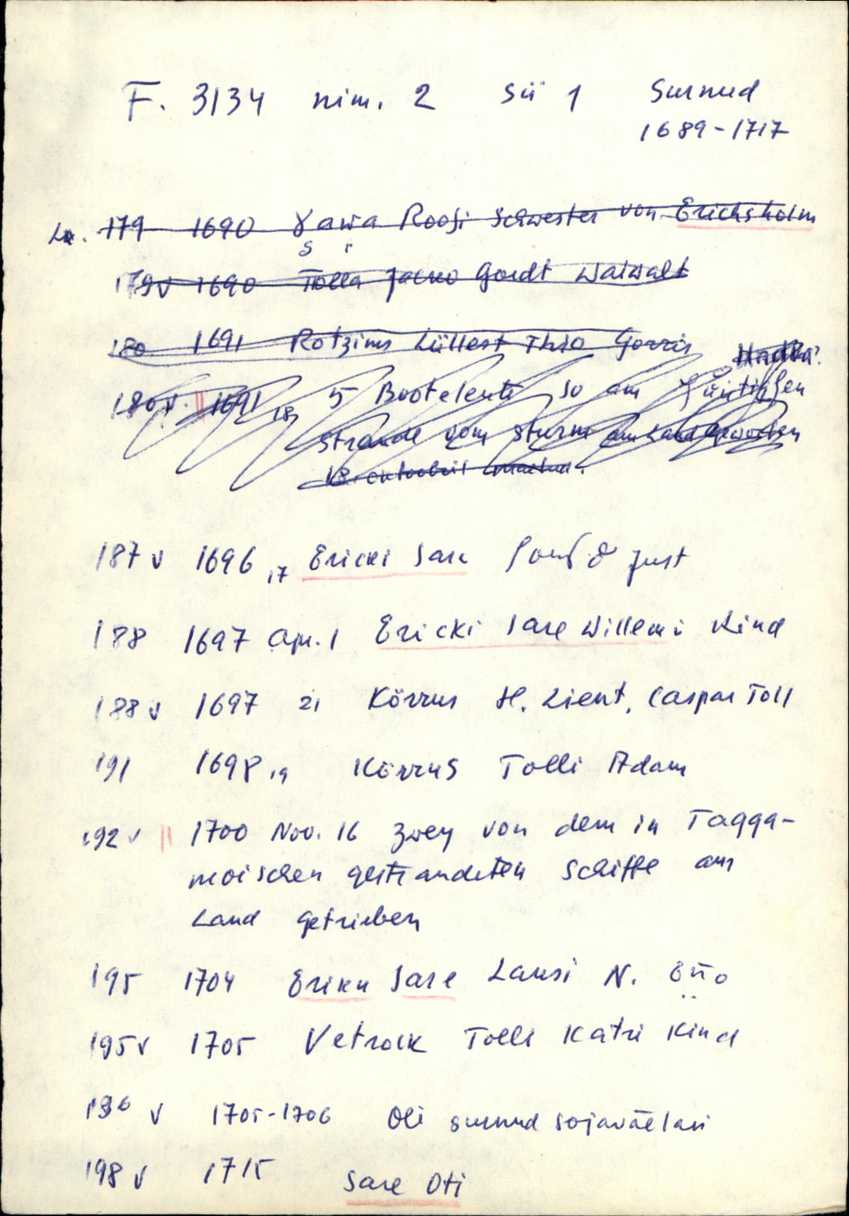 F. 3134 nim. 2 Sü 1 Surnud
1689-1717
179 1690 Roosi Schwester von Erichsholm
179v 1690 Tolla Jacko Gordt Waiwalt
180 1691 Rotzims Lüllest Thio Gorris
180v. 1691 18 5 Bootsleute so am
Strande vom Sturm
187 v 1696 17 Ericki Sare Just
188 1697 Apr. 1 Ericki Sare Willemi Kind
188 v 1697 21 Körrus H. Lieut. Caspar Toll
191 1698 19 Körrus Tolli Adam
192 v 1700 Nov. 16 Zwey von dem in Tagga-
moischen gestrandeten Schiffe am
Land getrieben
195 1704 Eriku Sare Lausi N.
195v 1705 Vetrock Tolli Katri Kind
196 v 1705-1706 Oli surnud sojaväelasi
198 v 1715 Sare Oti